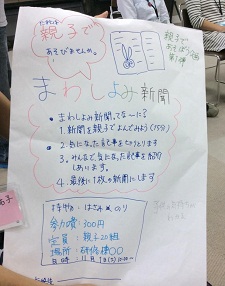 親子で
あそびませんか。
親子で
あそぼう
第1弾
まわしよみ新聞
• まわしよみ新聞ってな〜に?
1. 新聞を親子でよんでみよう(15分)
2. 気になった記事をきりとります
3. みんなで、気になった記事を
しあいます。
4. 最後に1枚の新聞にします
持ち物:はさみ のり
参加費:300円
定員:親子20組
場所:研修棟〇〇
日時:11月